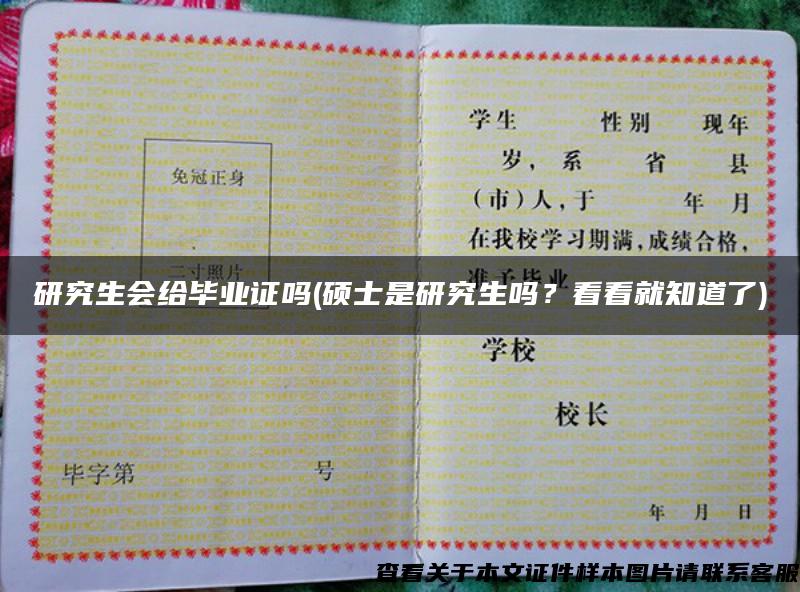 免冠正身
二寸照片
毕字第 号
学生 性别 现年
岁，系 省 县
（市）人，于 年 月
在我校学习期满，成绩合格，
准予毕业
研究生会给毕业证吗(硕士是研究生吗？看看就知道了)
学校
校长
年 月 日
查看关于本文证件样本图片请联系客服